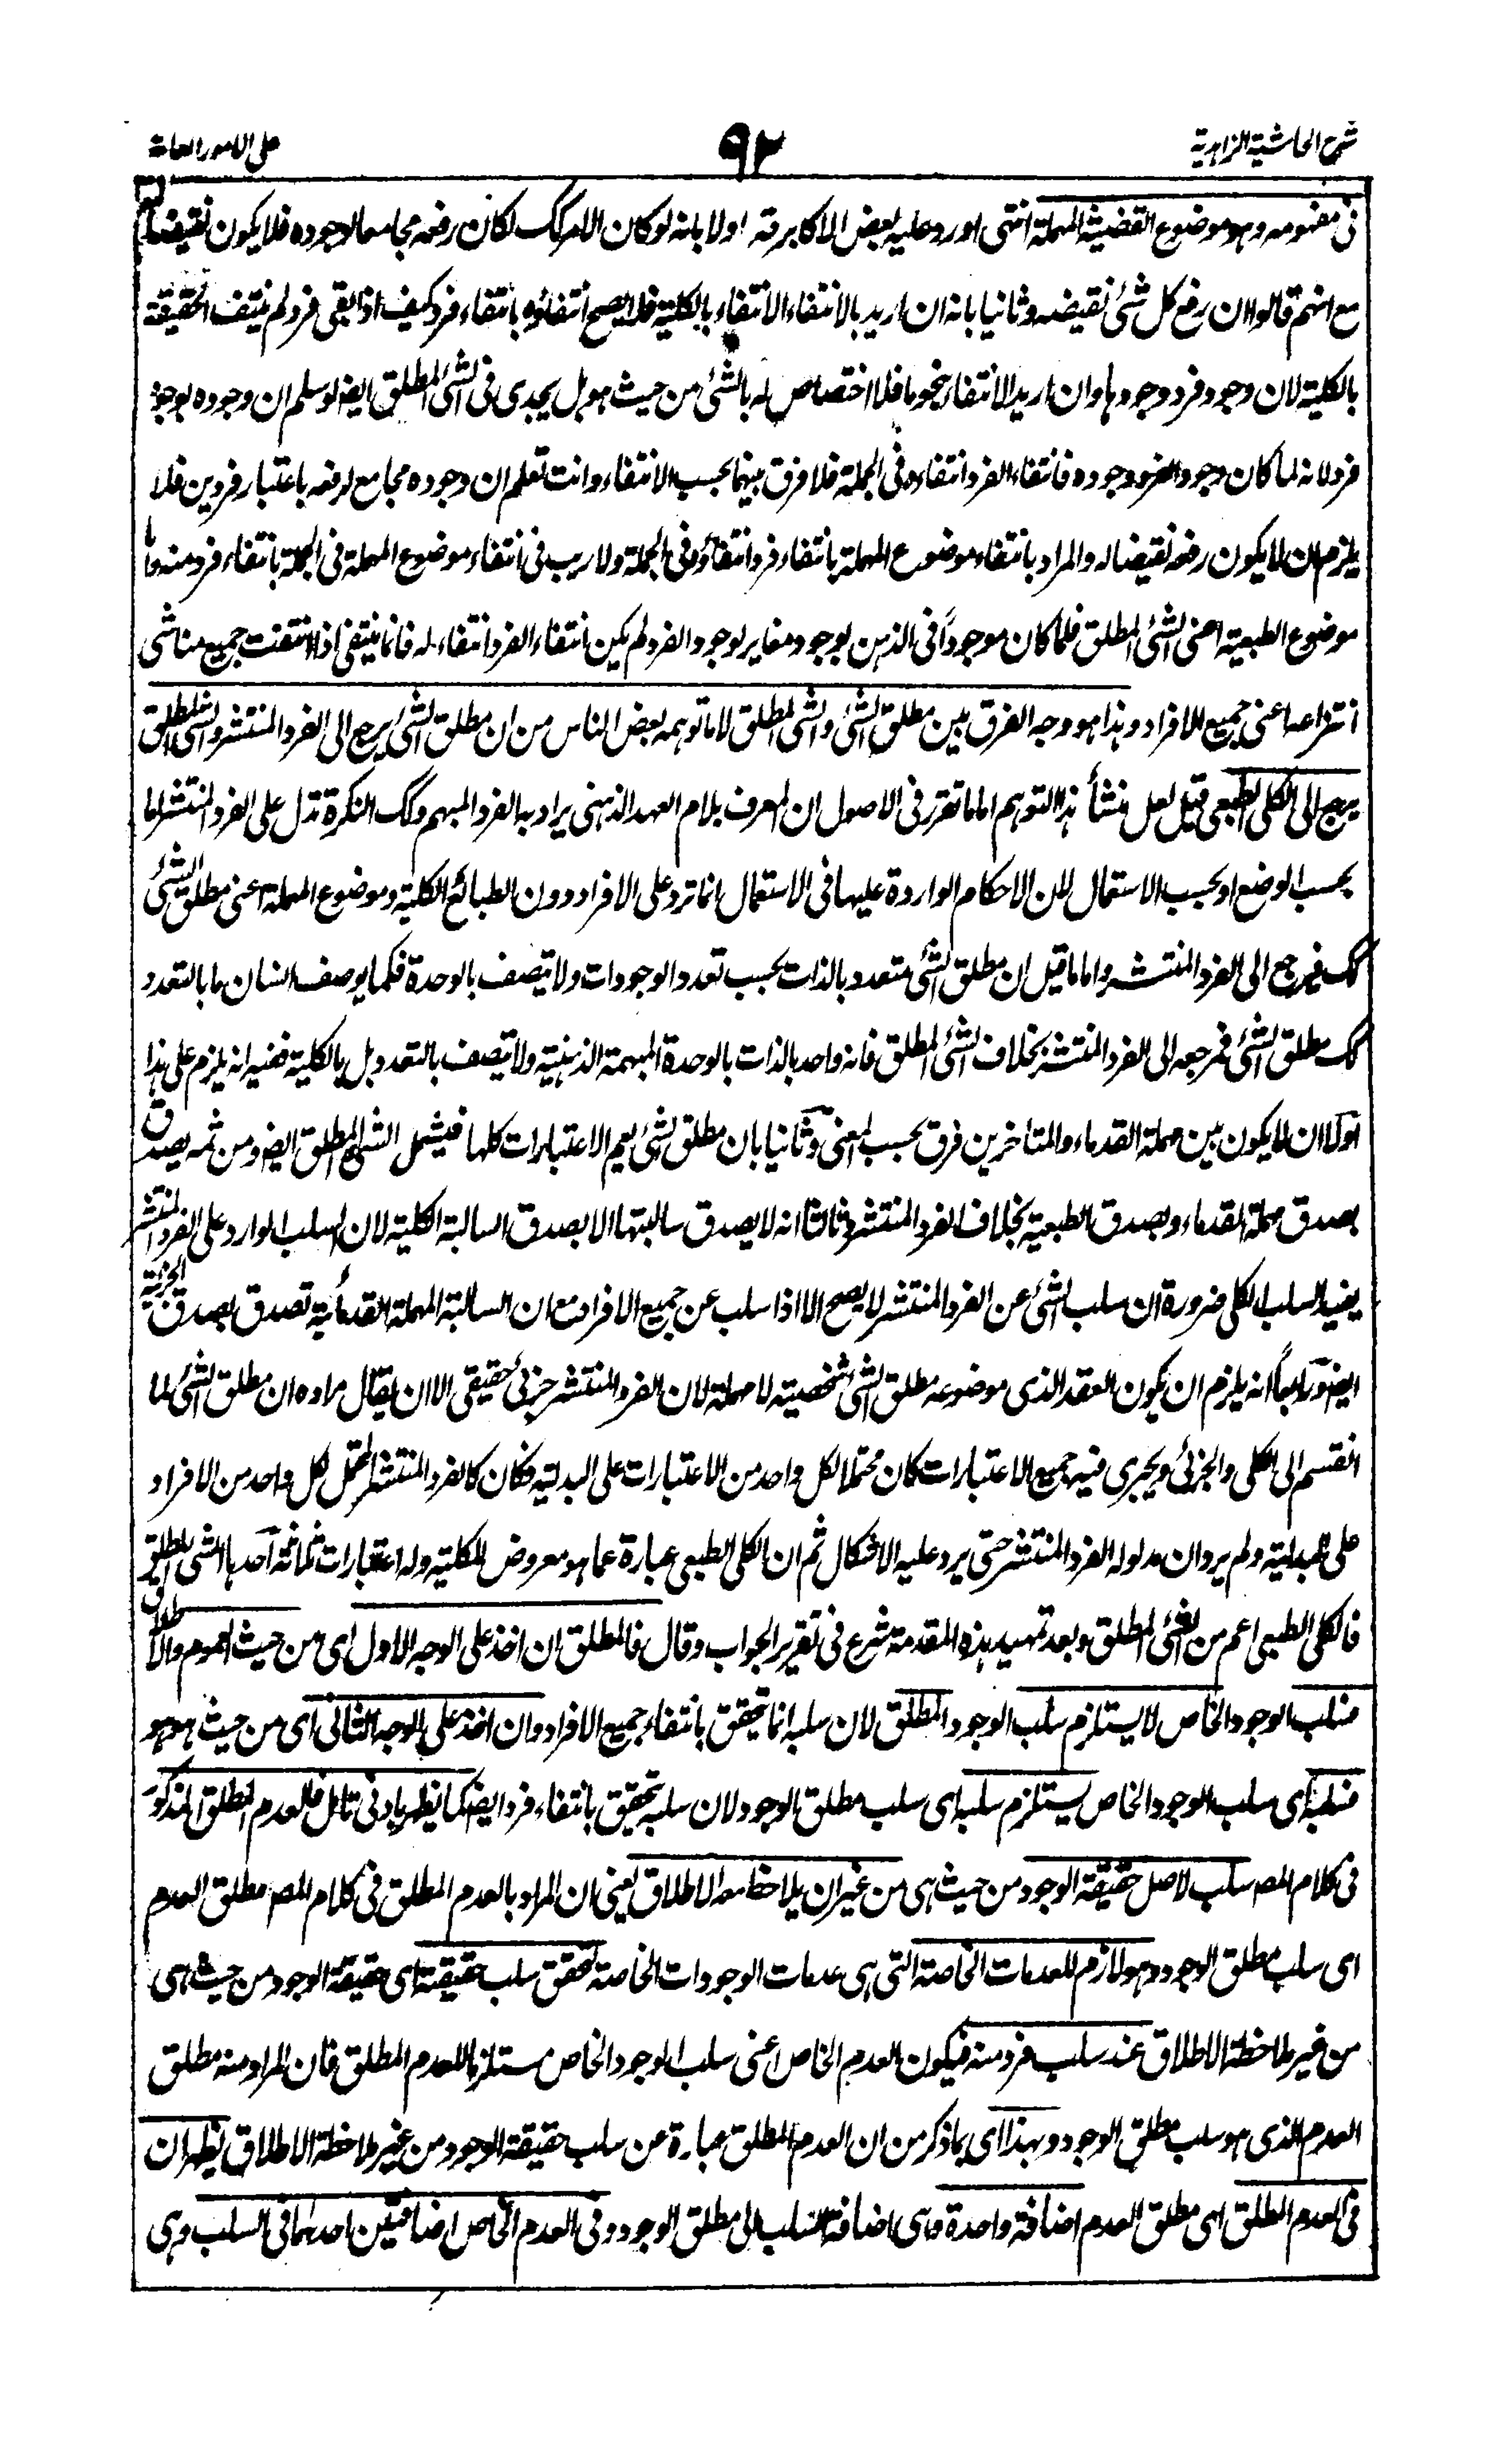 شرح الحاشية الزاهدية
٩٢
على الامور العامة
فى مفهومه وهو موضوع القضية المهملة انتهى اورد عليه بعض الاكابر قد اولا بانه لو كان الامر كك لكان رفعه مجامعا لوجوده فلا يكون نقيضا له
مع انهم قالوا ان رفع كل شئ نقيضه وثانيا بانه ان اريد بالانتفاء الانتفاء بالكلية فلا يصح انتفاؤه بانتفاء فرد كيف اذا بقى فرد لم ينتف الحقيقة
بالكلية لان وجود فرد وجودها وان اريد الانتفاء بنحو ما فلا اختصاص له بالشئ من حيث هو بل يجدى فى الشئ المطلق ايضا لو سلم ان وجوده بوجود
فرد لانه لما كان وجود الفرد وجوده فانتفاء الفرد انتفاؤه فى الجملة فلا فرق بينهما بحسب الانتفاء وانت تعلم ان وجوده مجامع لرفعه باعتبار فردين فلا
يلزم ان لا يكون رفعه نقيضا له والمراد بانتفاء موضوع المهملة بانتفاء فرد انتفاؤه فى الجملة ولا ريب فى انتفاء موضوع المهملة فى الجملة بانتفاء فرد منه واما
موضوع الطبعية اعنى الشئ المطلق فلما كان موجوداً فى الذهن بوجود مغاير لوجود الفرد لم يكن انتفاء الفرد انتفاء له فانما ينتفى اذا انتفت جميع مناشى
انتزاعه اعنى جميع الافراد وهذا هو وجه الفرق بين مطلق الشئ والشئ المطلق لا ما توهمه بعض الناس من ان مطلق الشئ يرجع الى الفرد المنتشر والشئ المطلق
يرجع الى الكلى الطبعى قيل لعل منشأ هذا التوهم اما ما تقرر فى الاصول ان المعرف بلام العهد الذهنى يراد به الفرد المبهم وكك النكرة تدل على الفرد المنتشر اما
بحسب الوضع او بحسب الاستعمال لان الاحكام الواردة عليها فى الاستعمال انما ترد على الافراد دون الطبائع الكلية وموضوع المهملة اعنى مطلق الشئ
كك فيرجع الى الفرد المنتشر واما ما قيل ان مطلق الشئ متعدد بالذات بحسب تعدد الوجودات ولا يتصف بالوحدة فكما يوصف انسان ما بالتعدد
كك مطلق الشئ فمرجعه الى الفرد المنتشر بخلاف الشئ المطلق فانه واحد بالذات بالوحدة المبهمة الذهنية ولا يتصف بالتعدد بل بالكلية ففيه انه يلزم على هذا
اولا ان لا يكون بين مهملة القدماء والمتاخرين فرق بحسب المعنى وثانيا بان مطلق الشئ يعم الاعتبارات كلها فيشمل الشئ المطلق ايضا ومن ثمه يصدق
بصدق مهملة القدماء وبصدق الطبعية بخلاف الفرد المنتشر وثالثا انه لا يصدق سالبتها الا بصدق السالبة الكلية لان السلب الوارد على الفرد المنتشر
يفيد السلب الكلى ضرورة ان سلب الشئ عن الفرد المنتشر لا يصح الا اذا سلب عن جميع الافراد مع ان السالبة المهملة القدمائية تصدق بصدق الجزئية
ايضا ورابعاً انه يلزم ان يكون العقد الذى موضوعه مطلق الشئ شخصية لا مهملة لان الفرد المنتشر جزئى حقيقى الا ان يقال مراده ان مطلق الشئ لما
انقسم الى الكلى والجزئى ويجرى فيه جميع الاعتبارات كان محتملا لكل واحد من الاعتبارات على البدلية فكان كالفرد المنتشر المحتمل لكل واحد من الافراد
على البدلية ولم يرد ان مدلوله الفرد المنتشر حتى يرد عليه الاشكال ثم ان الكلى الطبعى عبارة عما هو معروض للكلية وله اعتبارات ثلثة احدها الشئ المطلق
فالكلى الطبعى اعم من الشئ المطلق وبعد تمهيد هذه المقدمة شرع فى تقرير الجواب وقال فالمطلق ان اخذ على الوجه الاول اى من حيث العموم والاطلاق
فسلب الوجود الخاص لا يستلزم سلب الوجود المطلق لان سلبه انما يتحقق بانتفاء جميع الافراد وان اخذ على الوجه الثانى اى من حيث هو هو
فسلبه اى سلب الوجود الخاص يستلزم سلبه اى سلب مطلق الوجود لان سلبه يتحقق بانتفاء فرد ايضا كما يظهر بادنى تامل فالعدم المطلق المذكور
فى كلام المصـ سلب لاصل حقيقة الوجود من حيث هى من غير ان يلاحظ معه الاطلاق يعنى ان المراد بالعدم المطلق فى كلام المصـ مطلق العدم
اى سلب مطلق الوجود وهو لازم للعدمات الخاصة التى هى عدمات الوجودات الخاصة لتحقق سلب حقيقته اى حقيقة الوجود من حيث هى
من غير ملاحظة الاطلاق عند سلب فرد منه فيكون العدم الخاص اعنى سلب الوجود الخاص مستلزما للعدم المطلق فان المراد منه مطلق
العدم الذى هو سلب مطلق الوجود وبهذا اى بما ذكر من ان العدم المطلق عبارة عن سلب حقيقة الوجود من غير ملاحظة الاطلاق يظهر ان
فى العدم المطلق اى مطلق العدم اضافة واحدة هى اضافة السلب الى مطلق الوجود وفى العدم الخاص اضافتين احدهما فى السلب وهى